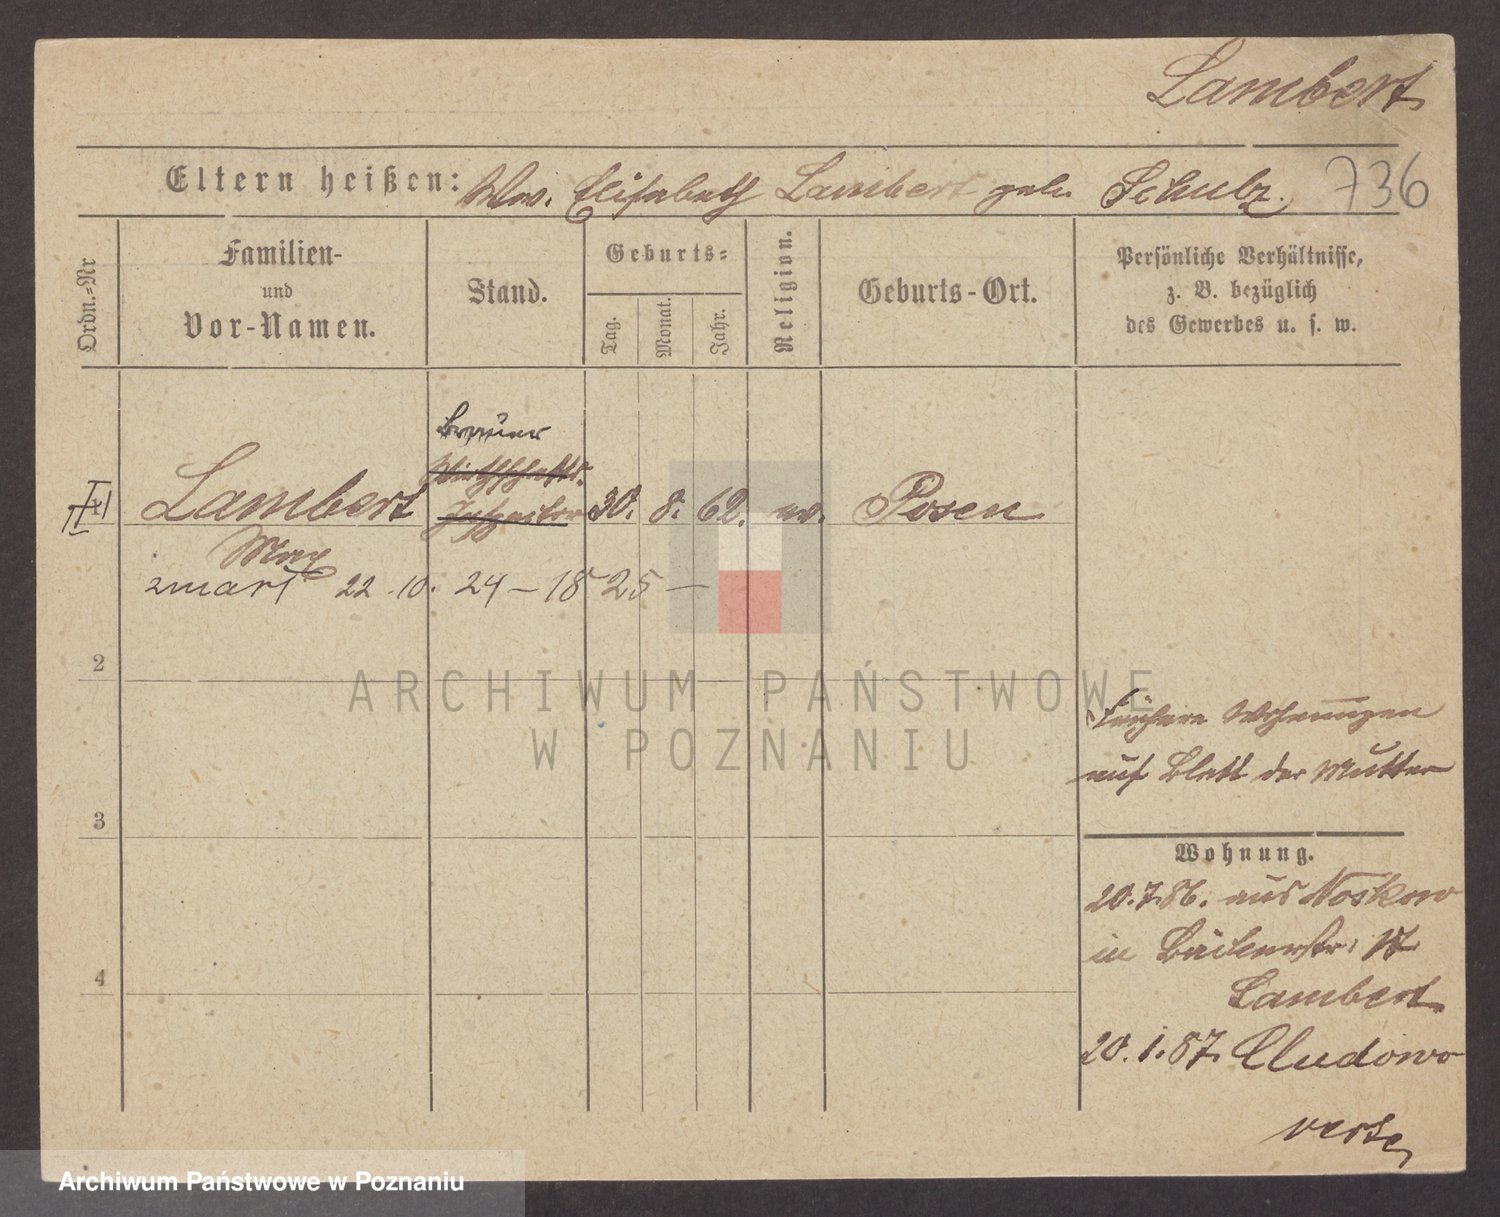 Lambert
Eltern heißen: Ww. Elisabeth Lambert geb. Schulz. 736
Ordn.=Nr
Familien-
und
Vor-Namen.
Stand.
Geburts=
Tag.
Monat.
Jahr.
Religion.
Geburts-Ort.
Persönliche Verhältnisse,
z. B. bezüglich
des Gewerbes u. s. w.
Brauer
Wirthschafts.
Inspector
Lambert 30. 8. 62. ev. Posen
Max
zmarł 22.10.24 – 1825 –
2
3
4
Frühere Wohnungen
auf Blatt der Mutter
Wohnung.
20.7.86. aus Noskow
in Bäckerstr.
Lambert
20.1.87. Chudowo
verte
ARCHIWUM PAŃSTWOWE
W POZNANIU
Archiwum Państwowe w Poznaniu